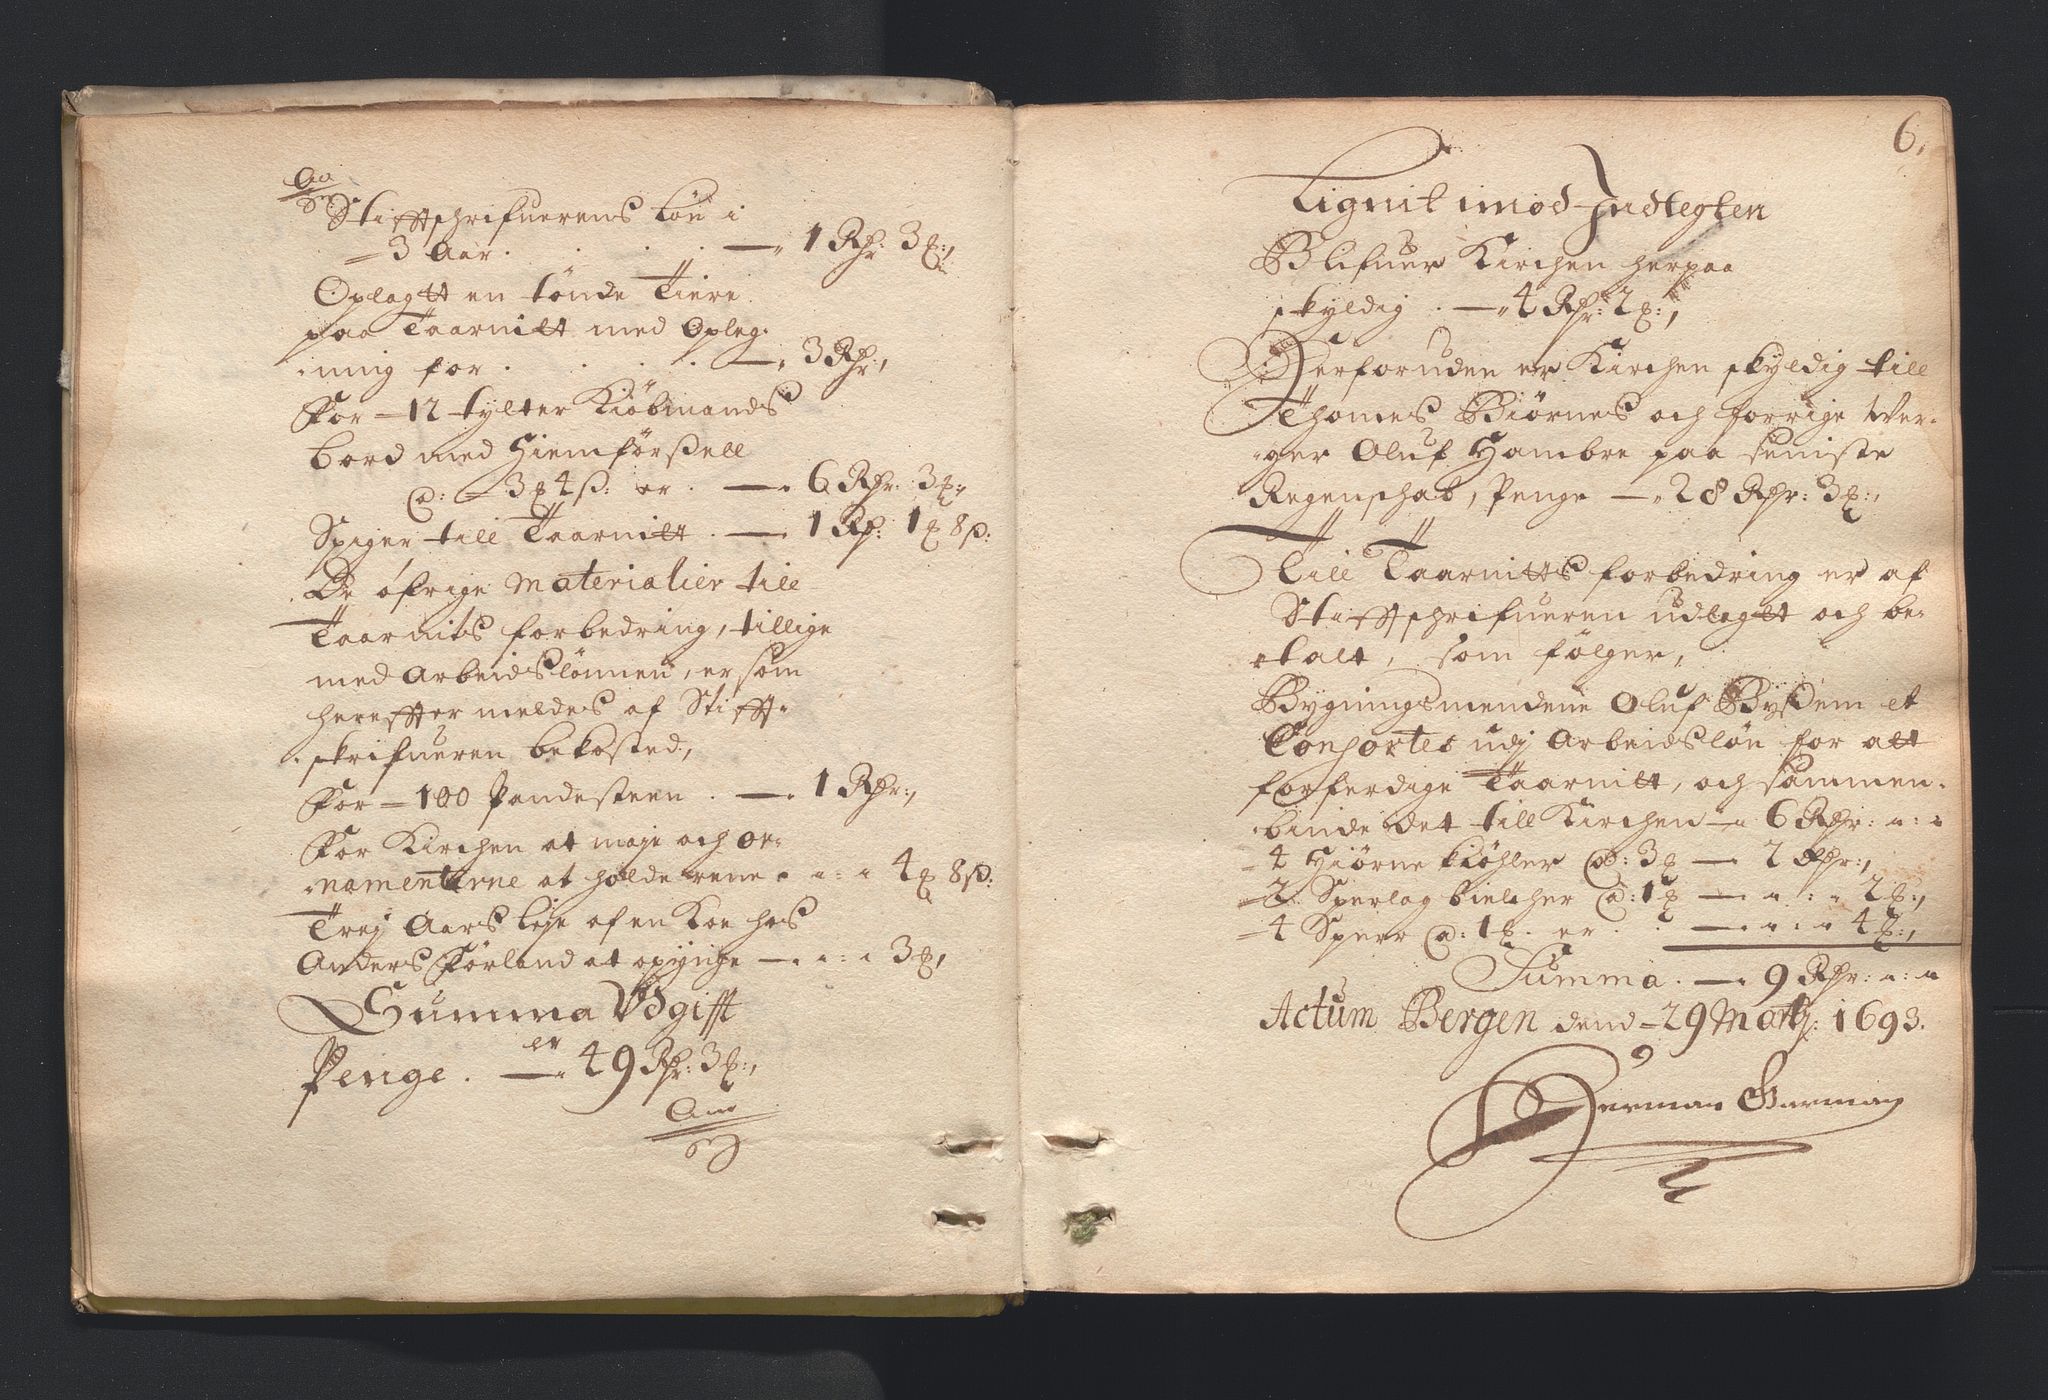 Stiftschrifuerens Løn i
3 Aar . . . . — 1 Rdr: 3 ꝣ:,
Oplagtt en tønde Tiere
paa Taarnitt med Opleg-
ning for . . . . — 3 Rdr:,
For — 12 tylter Kiöbmands
bord med Hiemförßell
@: — 3 ꝣ 4 ß: er . — 6 Rdr: 3 ꝣ:
Spiger till Taarnitt . — 1 Rdr: 1 ꝣ 8 ß:
De öfrige Materialier till
Taarnits forbedring, tillige
med Arbeidslönnen, er som
hereffter meldes af Stifft-
skrifueren bekosted,
For — 100 Pandesteen . — 1 Rdr:,
For Kirchen at maje och or-
namenterne at holde rene . . : . 4 ꝣ 8 ß:
Trej Aars leje af en Koe hos
Anders Förland at opÿnge — . . : . 3 ꝣ,
Summa Vdgifft
Penge . er — 49 Rdr: 3 ꝣ:,
6.
Lignit imod Indtegten
Blifuer Kirchen herpaa
skyldig . — 4 Rdr: 2 ꝣ:,
Derforuden er Kirchen skyldig till
Thomes Biörnes och forrige Wer-
ger Oluf Hambre paa seniste
Regenschab, Penge — 28 Rdr: 3 ꝣ:,
Till Taarnitts forbedring er af
Stifftschrifueren udlagtt och be-
talt, som følger,
Bygningsmendene Oluf Bysdem et
Consortes udj Arbeidsløn for att
forferdige Taarnitt, och sammen-
binde det till Kirchen — 6 Rdr: . : .
4 Hiörne kiøhler @: 3 ꝣ — 2 Rdr:,
2 Sperlag bielcher @: 1 ꝣ — . : . 2 ꝣ:,
4 Sperr @: 1 ꝣ. er . . — . : . 4 ꝣ:,
Summa . — 9 Rdr: . : .
Actum Bergen dend 29 Martj: 1693.
Herman Garman